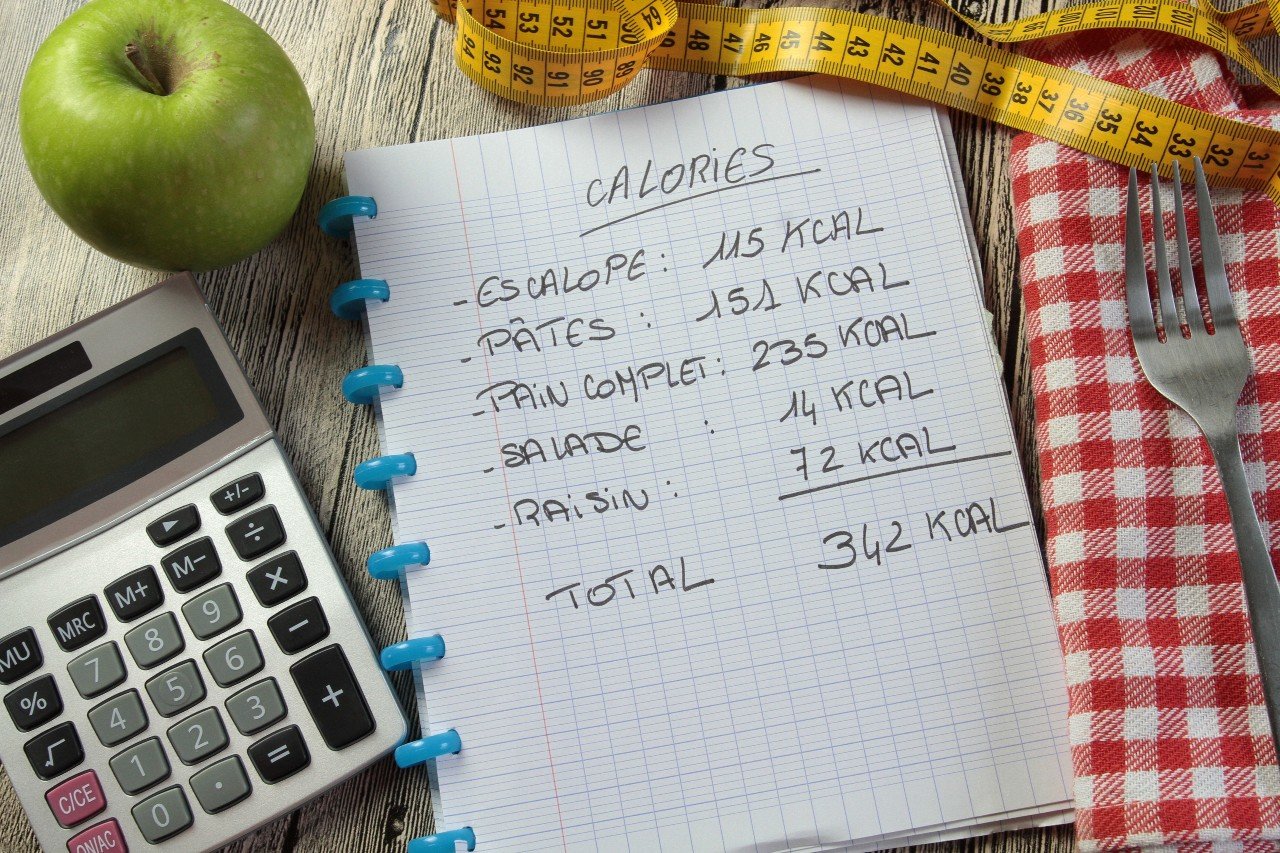 54 53 52 51
93 92 91 90 89
48 47 46 45 44 43 42 41 40 39 38 37 36 35 34 33 32 31
CALORIES
- ESCALOPE : 115 KCAL
- PÂTES : 151 KCAL
- PAIN COMPLET : 235 KCAL
- SALADE : 14 KCAL
- RAISIN : 72 KCAL
TOTAL 342 KCAL
▶ +/-
MU MRC M+ M- ÷
% 7 8 9 ×
√ 4 5 6 −
C/CE 1 2 3 +
ON/AC 0 . =